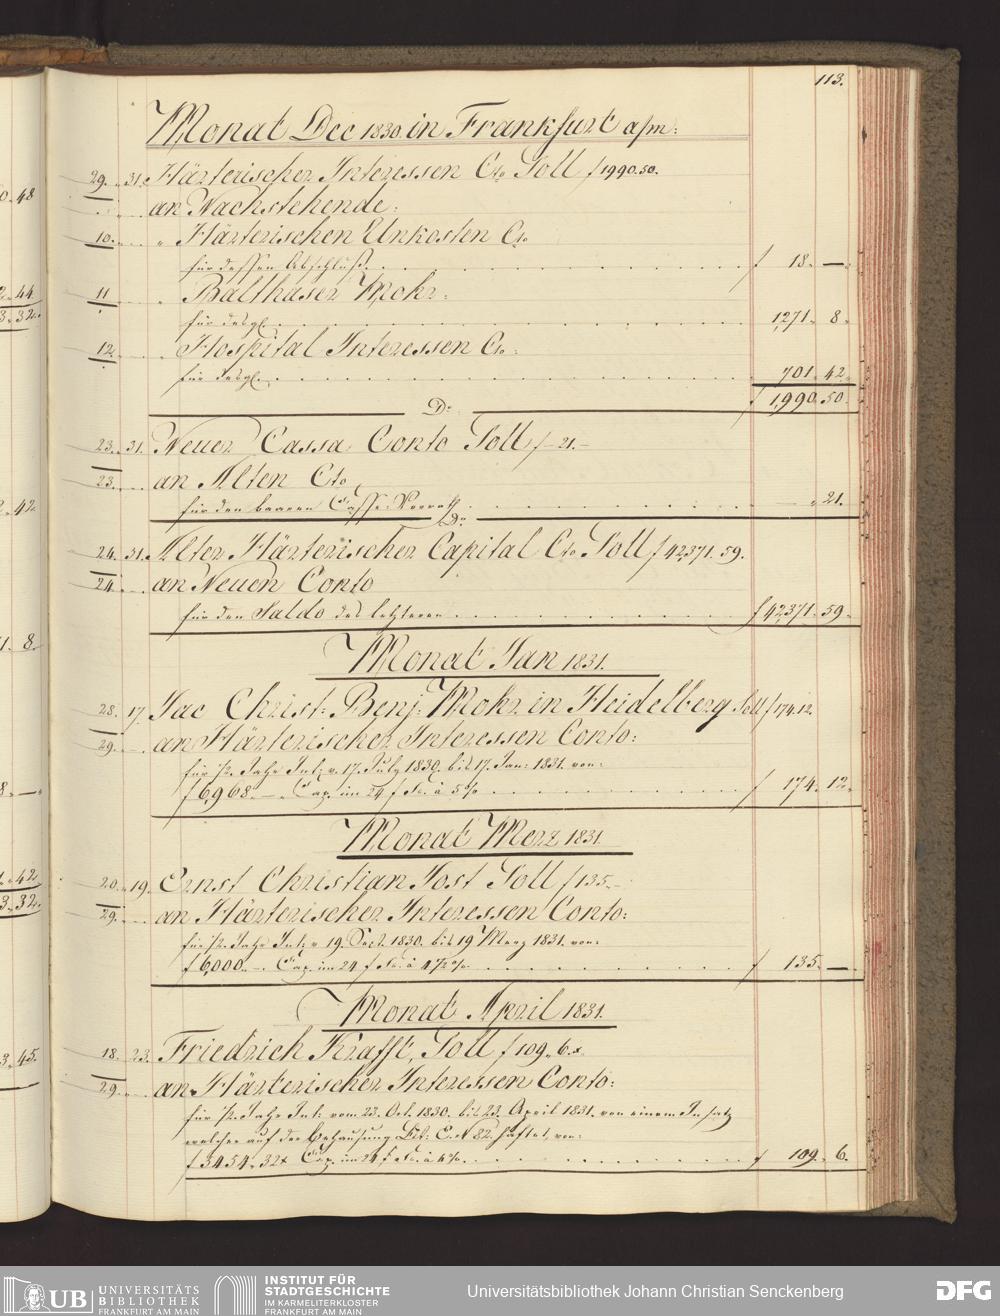 113.
Monat Dec 1830 in Frankfurt a/m:
29. 31. Härterischer Interessen Cto Soll f 1990.50.
an Nachstehende:
10. " Härterischen Unkosten Cto
für dessen Abschluß f 18. —
11 " Balthaser Mohr:
für desgl. 1,271. 8.
12. " Hospital Interessen Cto:
für desgl. 701. 42.
f 1,990. 50.
Do
23. 31. Neuer Cassa Conto Soll f -21.-
23. an Alten Cto
für den baaren Cassa Vorrath " 21.
Do
24. 31. Alter Härterischer Capital Cto Soll f 42,371. 59.
24. an Neuen Conto
für den Saldo des letzteren f 42,371. 59.
Monat Jan 1831.
28. 17. Jac Christ: Benj: Mohr in Heidelberg Soll f 174.12.
29. an Härterischer Interessen Conto:
für ½ Jahr Int: v. 17. July 1830. bis 17. Jan: 1831. von:
f 6,968. — Cap. im 24 f Fs. à 5 % f 174. 12.
Monat Merz 1831.
20. 19. Ernst Christian Jost Soll f 135.-
29. an Härterischer Interessen Conto:
für ½ Jahr Int: v 19. Sept. 1830. bis 19 Merz 1831. von:
f 6,000. — Cap. im 24 f Fs. à 4½ %. f 135. —
Monat April 1831.
18. 23. Friedrich Krafft, Soll f 109. 6.x
29. an Härterischer Interessen Conto:
für ½ Jahr Int: vom 23. Oct. 1830. bis 23. April 1831. von einem Insatz
welcher auf der Behausung Lit: C. No 82. haftet, von:
f 3454. 32x Cap. im 24 f Fs. à 4 %. f 109. 6.
0. 48
2. 44
3. 32.
2. 42.
1 8.
8. —
1. 42.
3. 32.
3. 45.
UB UNIVERSITÄTS
BIBLIOTHEK
FRANKFURT AM MAIN
INSTITUT FÜR
STADTGESCHICHTE
IM KARMELITERKLOSTER
FRANKFURT AM MAIN
Universitätsbibliothek Johann Christian Senckenberg
DFG